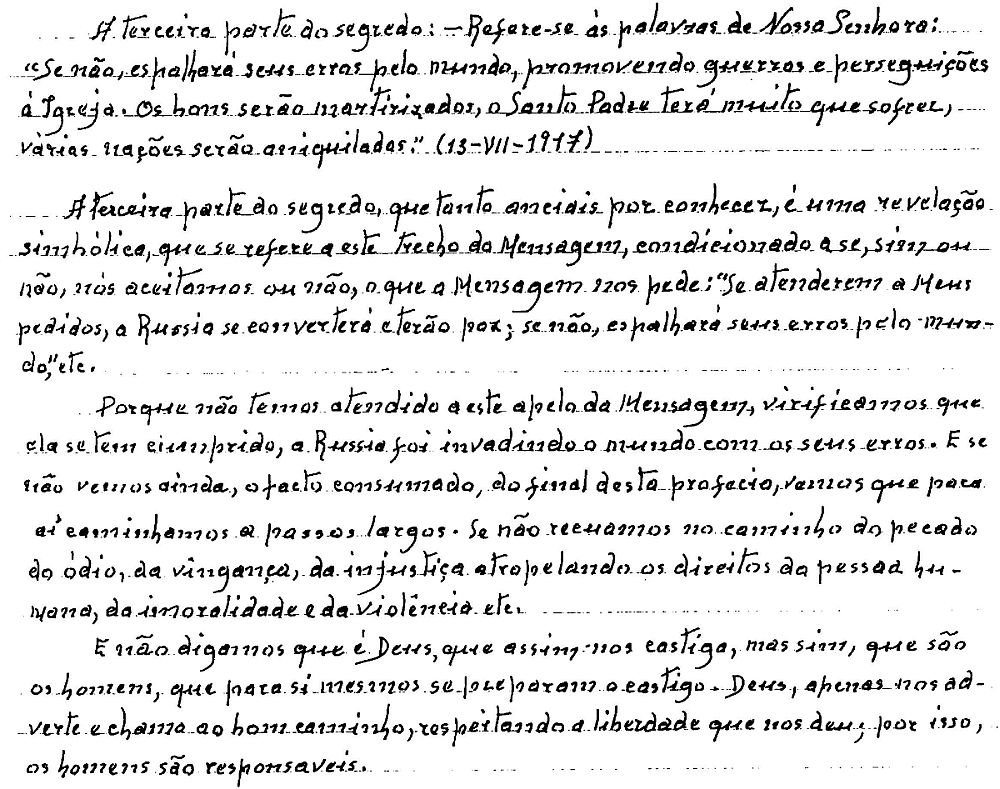 A terceira parte do segredo: – Refere-se às palavras de Nossa Senhora:
"Se não, espalhará seus erros pelo mundo, promovendo guerras e perseguições
á Igreja. Os bons serão martirizados, o Santo Padre terá muito que sofrer,
várias nações serão aniquiladas." (13-VII-1917)
A terceira parte do segredo, que tanto anciais por conhecer, é uma revelação
simbólica, que se refere a este trecho da Mensagem, condicionado a se, sim ou
não, nós aceitamos ou não, o que a Mensagem nos pede: "Se atenderem a Meus
pedidos, a Russia se converterá e terão paz; se não, espalhará seus erros pelo mun-
do," etc.
Porque não temos atendido a este apelo da Mensagem, virificamos que
ela se tem cumprido, a Russia foi invadindo o mundo com os seus erros. E se
não vemos ainda, o facto consumado, do final desta profecia, vemos que para
aí caminhamos a passos largos. Se não recuamos no caminho do pecado
do ódio, da vingança, da injustiça atropelando os direitos da pessoa hu-
mana, da imoralidade e da violência etc.
E não digamos que é Deus, que assim nos castiga, mas sim, que são
os homens, que para si mesmos se preparam o castigo. Deus, apenas nos ad-
verte e chama ao bom caminho, respeitando a liberdade que nos deu; por isso,
os homens são responsaveis.